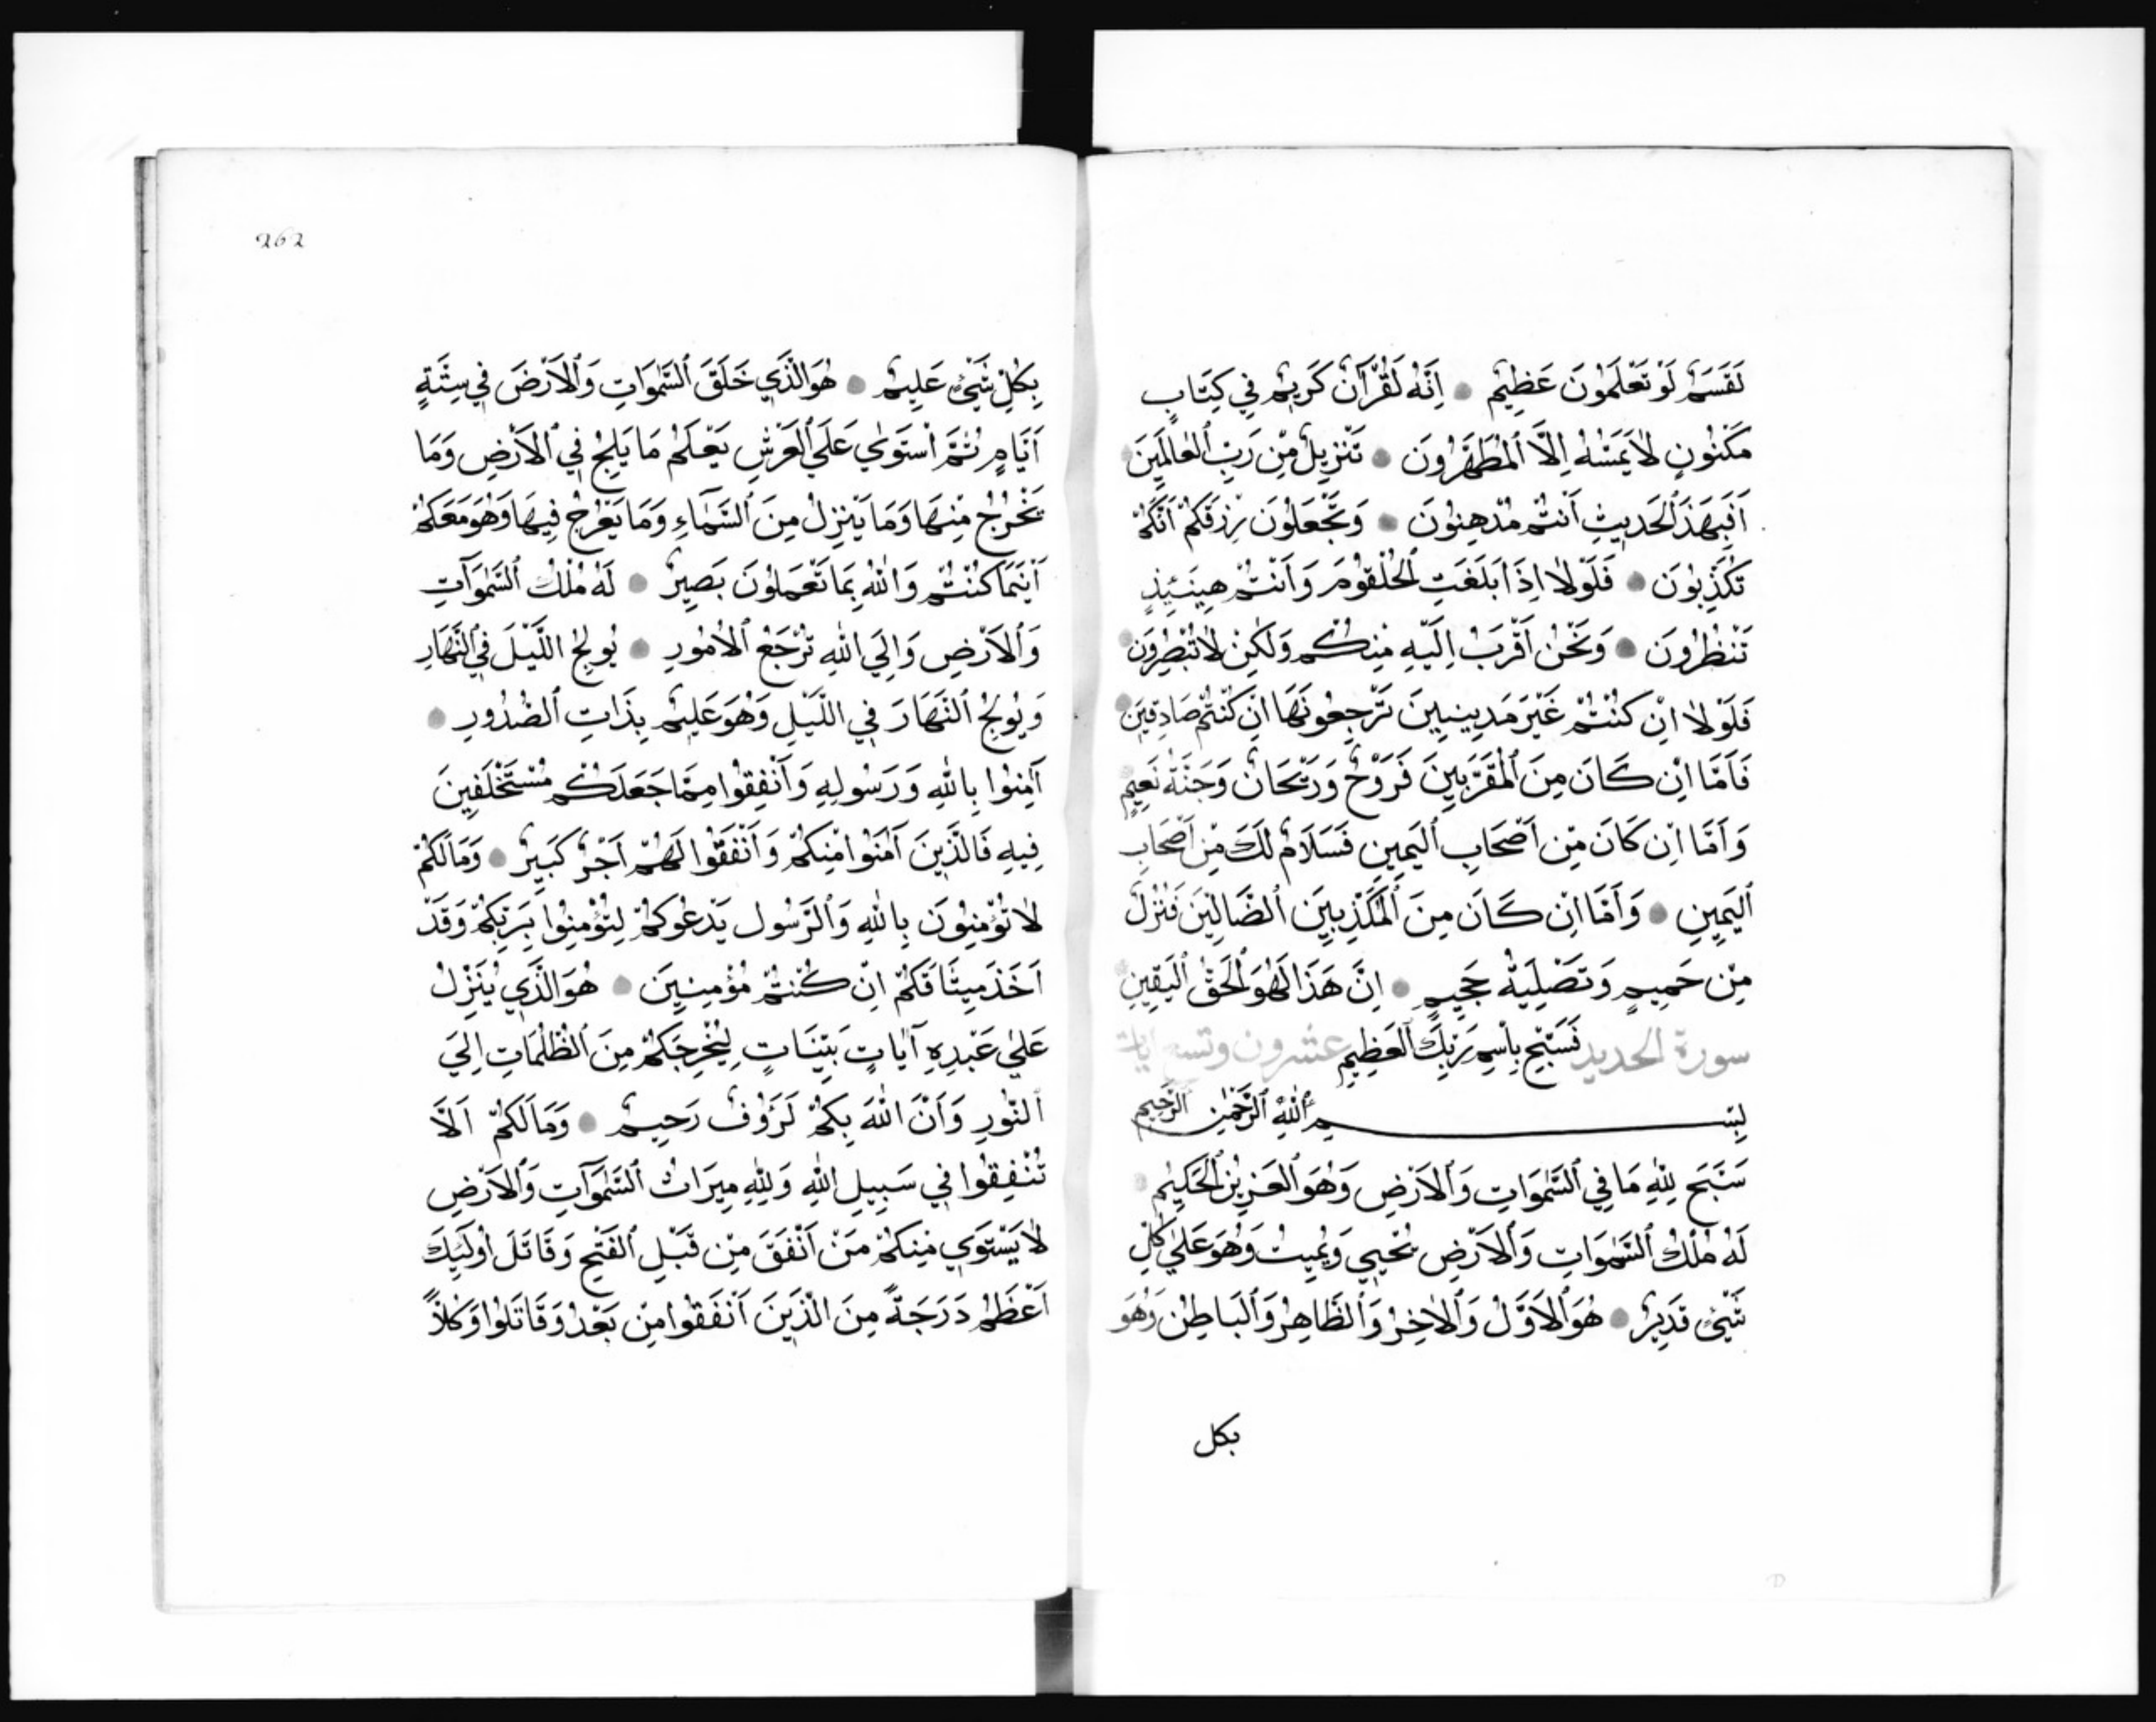 لَقَسَمٌ لَوْ تَعْلَمُونَ عَظِيمٌ اِنَّهُ لَقُرْآنٌ كَرِيمٌ فِي كِتَابٍ
مَكْنُونٍ لَا يَمَسُّهُ اِلَّا ٱلْمُطَهَّرُونَ تَنْزِيلٌ مِّنْ رَبِّ ٱلْعَالَمِينَ
اَفَبِهَذَ ٱلْحَدِيثِ اَنْتُمْ مُدْهِنُونَ وَتَجْعَلُونَ رِزْقَكُمْ اَنَّكُمْ
تُكَذِّبُونَ فَلَوْلَا اِذَا بَلَغَتِ ٱلْحُلْقُومَ وَاَنْتُمْ حِينَئِذٍ
تَنْظُرُونَ وَنَحْنُ اَقْرَبُ اِلَيْهِ مِنْكُمْ وَلَكِنْ لَا تُبْصِرُونَ
فَلَوْلَا اِنْ كُنْتُمْ غَيْرَ مَدِينِيينَ تَرْجِعُونَهَا اِنْ كُنْتُمْ صَادِقِينَ
فَاَمَّا اِنْ كَانَ مِنَ ٱلْمُقَرَّبِينَ فَرَوْحٌ وَرَيْحَانٌ وَجَنَّةُ نَعِيمٍ
وَاَمَّا اِنْ كَانَ مِّنْ اَصْحَابِ ٱلْيَمِينِ فَسَلَامٌ لَكَ مِّنْ اَصْحَابِ
ٱلْيَمِينِ وَاَمَّا اِنْ كَانَ مِنَ ٱلْمُكَذِّبِينَ ٱلضَّالِّينَ فَنُزُلٌ
مِّنْ حَمِيمٍ وَتَصْلِيَةُ جَحِيمٍ اِنَّ هَذَا لَهُوَ ٱلْحَقُّ ٱلْيَقِينِ
فَسَبِّحْ بِاسْمِ رَبِّكَ ٱلْعَظِيمِ سورة الحديد عشرون وتسع ايات
بِسْمِ ٱللّٰهِ ٱلرَّحْمٰنِ ٱلرَّحِيمِ
سَبَّحَ لِلّٰهِ مَا فِي ٱلسَّمٰوَاتِ وَٱلْاَرْضِ وَهُوَ ٱلْعَزِيزُ ٱلْحَكِيمُ
لَهُ مُلْكُ ٱلسَّمٰوَاتِ وَٱلْاَرْضِ يُحْيِي وَيُمِيتُ وَهُوَ عَلٰي كُلِّ
شَيْئٍ قَدِيرٌ هُوَ ٱلْاَوَّلُ وَٱلْاٰخِرُ وَٱلظَّاهِرُ وَٱلْبَاطِنُ وَهُوَ
بكل
262
بِكُلِّ شَيْئٍ عَلِيمٌ هُوَ الَّذِي خَلَقَ ٱلسَّمٰوَاتِ وَٱلْاَرْضَ فِي سِتَّةِ
اَيَّامٍ ثُمَّ اسْتَوٰي عَلَي ٱلْعَرْشِ يَعْلَمُ مَا يَلِجُ فِي ٱلْاَرْضِ وَمَا
يَخْرُجُ مِنْهَا وَمَا يَنْزِلُ مِنَ ٱلسَّمَآءِ وَمَا يَعْرُجُ فِيهَا وَهُوَ مَعَكُمْ
اَيْنَمَا كُنْتُمْ وَاللّٰهُ بِمَا تَعْمَلُونَ بَصِيرٌ لَهُ مُلْكُ ٱلسَّمٰوَاتِ
وَٱلْاَرْضِ وَاِلَي اللّٰهِ تُرْجَعُ ٱلْاُمُورِ يُولِجُ اللَّيْلَ فِي ٱلنَّهَارِ
وَيُولِجُ ٱلنَّهَارَ فِي اللَّيْلِ وَهُوَ عَلِيمٌ بِذَاتِ ٱلصُّدُورِ
آمِنُوا بِاللّٰهِ وَرَسُولِهِ وَاَنْفِقُوا مِمَّا جَعَلَكُمْ مُسْتَخْلَفِينَ
فِيهِ فَالَّذِينَ اٰمَنُوا مِنْكُمْ وَاَنْفَقُوا لَهُمْ اَجْرٌ كَبِيرٌ وَمَا لَكُمْ
لَا تُؤْمِنُونَ بِاللّٰهِ وَٱلرَّسُولِ يَدْعُوكُمْ لِتُؤْمِنُوا بِرَبِّكُمْ وَقَدْ
اَخَذَ مِيثَاقَكُمْ اِنْ كُنْتُمْ مُؤْمِنِينَ هُوَ الَّذِي يُنَزِّلُ
عَلٰي عَبْدِهِ آيَاتٍ بَيِّنَاتٍ لِيُخْرِجَكُمْ مِنَ ٱلظُّلُمَاتِ اِلَيَ
ٱلنُّورِ وَاَنَّ اللّٰهَ بِكُمْ لَرَؤُفٌ رَحِيمٌ وَمَا لَكُمْ اَلَّا
تُنْفِقُوا فِي سَبِيلِ اللّٰهِ وَلِلّٰهِ مِيرَاثُ ٱلسَّمٰوَاتِ وَٱلْاَرْضِ
لَا يَسْتَوِي مِنْكُمْ مَنْ اَنْفَقَ مِنْ قَبْلِ ٱلْفَتْحِ وَقَاتَلَ اُولَئِكَ
اَعْظَمُ دَرَجَةً مِنَ الَّذِينَ اَنْفَقُوا مِنْ بَعْدُ وَقَاتَلُوا وَكُلًّا